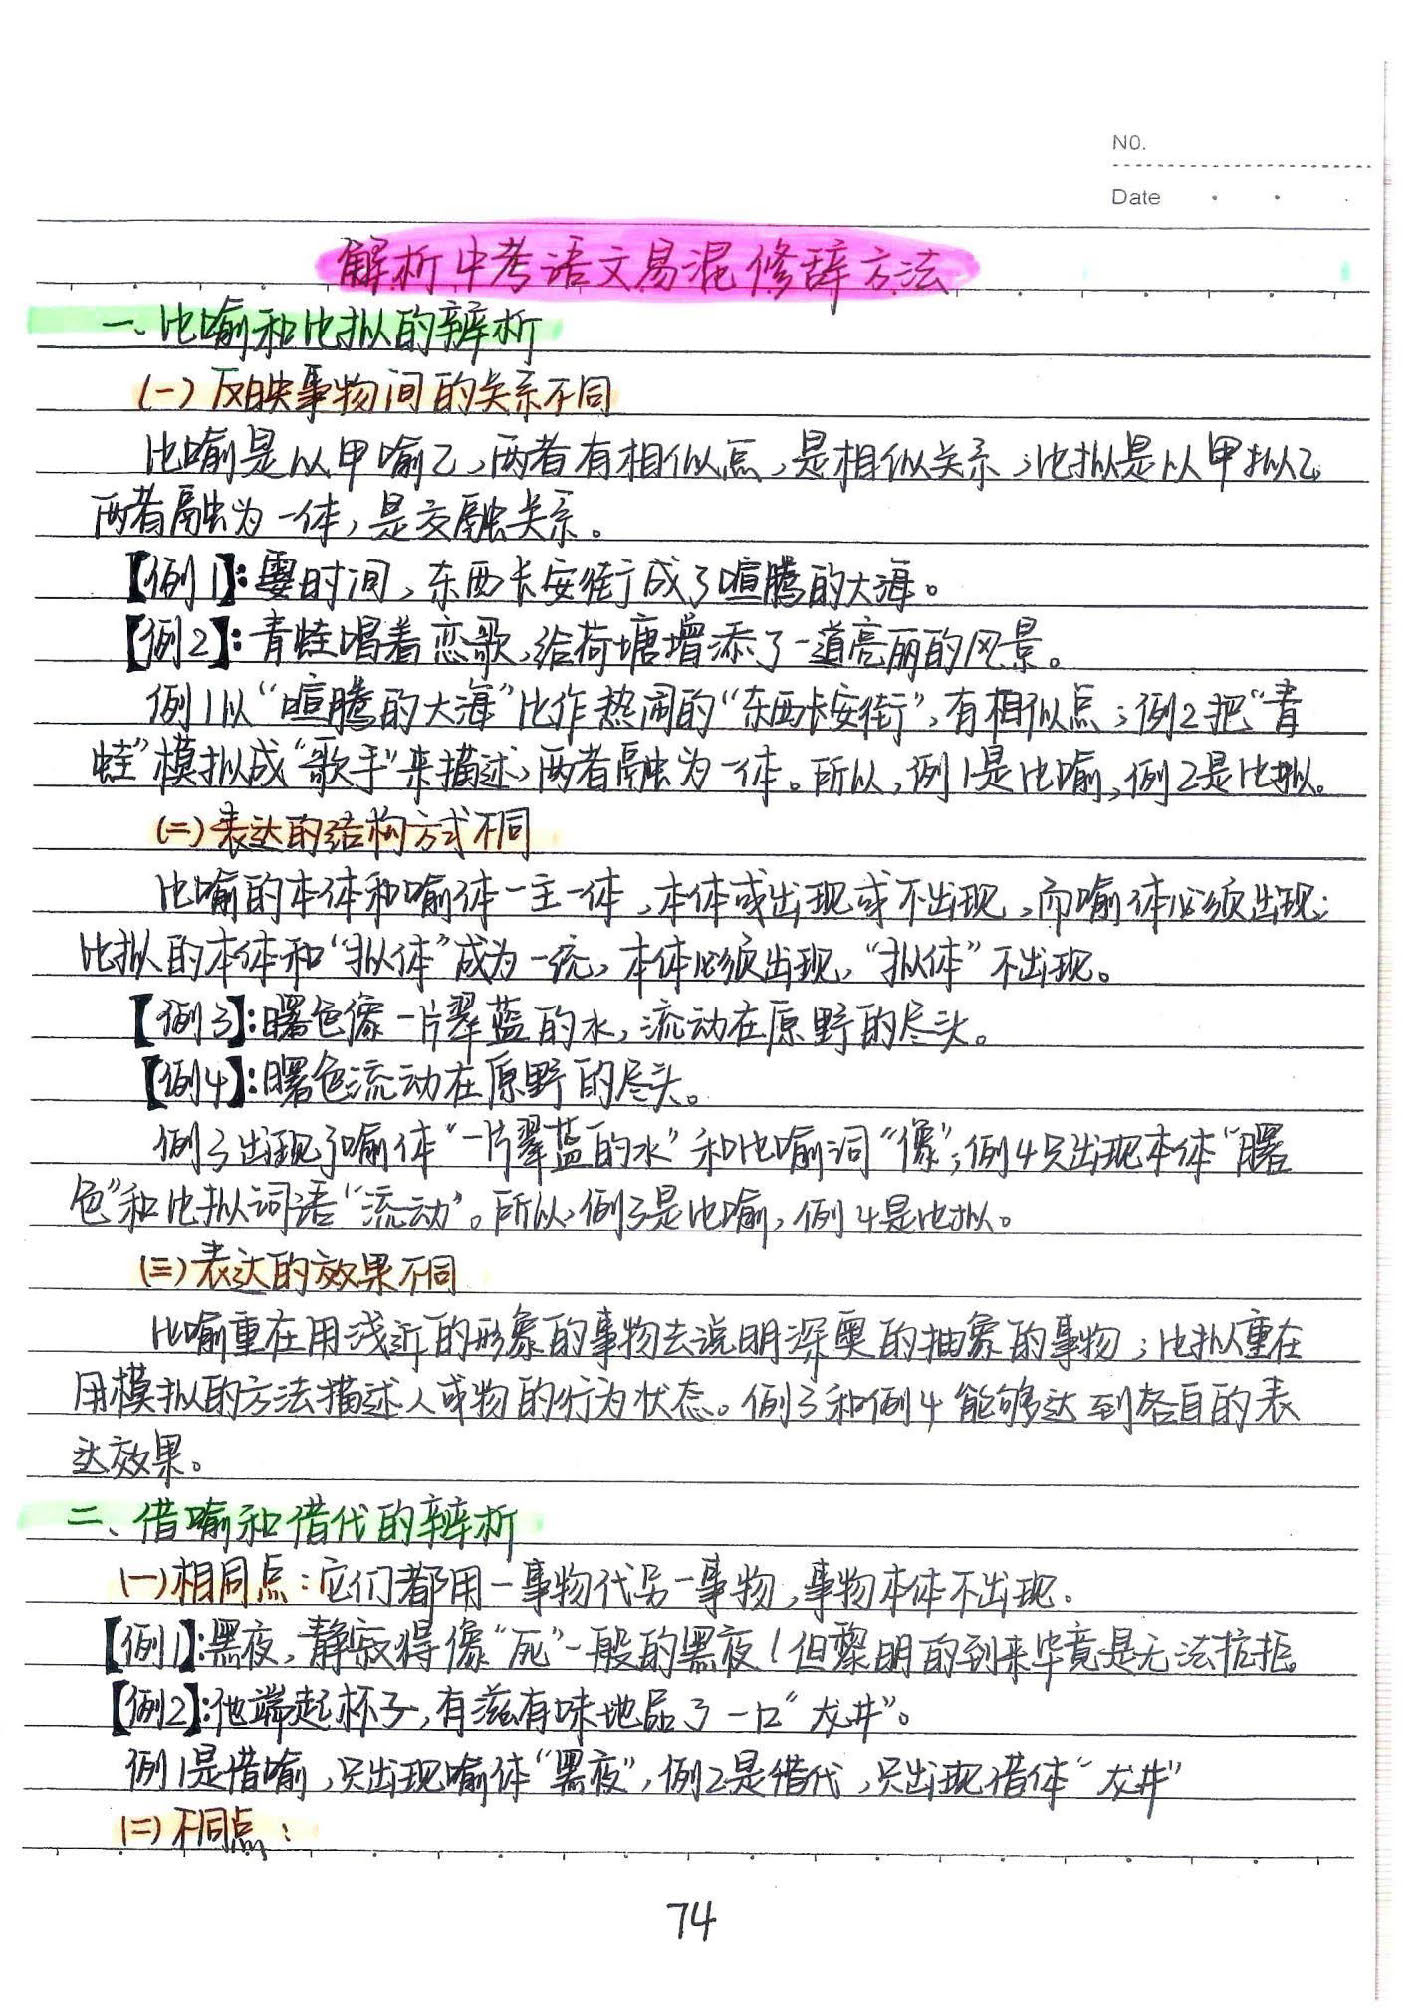 NO.
Date
解析中考语文易混修辞方法
一、比喻和比拟的辨析
(一)反映事物间的关系不同
比喻是以甲喻乙,两者有相似点,是相似关系;比拟是以甲拟乙,
两者融为一体,是交融关系。
【例1】:霎时间,东西长安街成了喧腾的大海。
【例2】:青蛙唱着恋歌,给荷塘增添了一道亮丽的风景。
例1以“喧腾的大海”比作热闹的“东西长安街”,有相似点;例2把“青
蛙”模拟成“歌手”来描述,两者融为一体。所以,例1是比喻,例2是比拟。
(二)表达的结构方式不同
比喻的本体和喻体一主一体,本体或出现或不出现,而喻体必须出现;
比拟的本体和“拟体”成为一统,本体必须出现,“拟体”不出现。
【例3】:曙色像一片翠蓝的水,流动在原野的尽头。
【例4】:曙色流动在原野的尽头。
例3出现了喻体“一片翠蓝的水”和比喻词“像”;例4只出现本体“曙
色”和比拟词语“流动”。所以,例3是比喻,例4是比拟。
(三)表达的效果不同
比喻重在用浅近的形象的事物去说明深奥的抽象的事物;比拟重在
用模拟的方法描述人或物的行为状态。例3和例4能够达到各自的表
达效果。
二、借喻和借代的辨析
(一)相同点:它们都用一事物代另一事物,事物本体不出现.
【例1】:黑夜,静寂得像“死”一般的黑夜!但黎明的到来毕竟是无法抗拒。
【例2】:他端起杯子,有滋有味地品了一口“龙井”。
例1是借喻,只出现喻体“黑夜”,例2是借代,只出现借体“龙井”
(二)不同点:
74